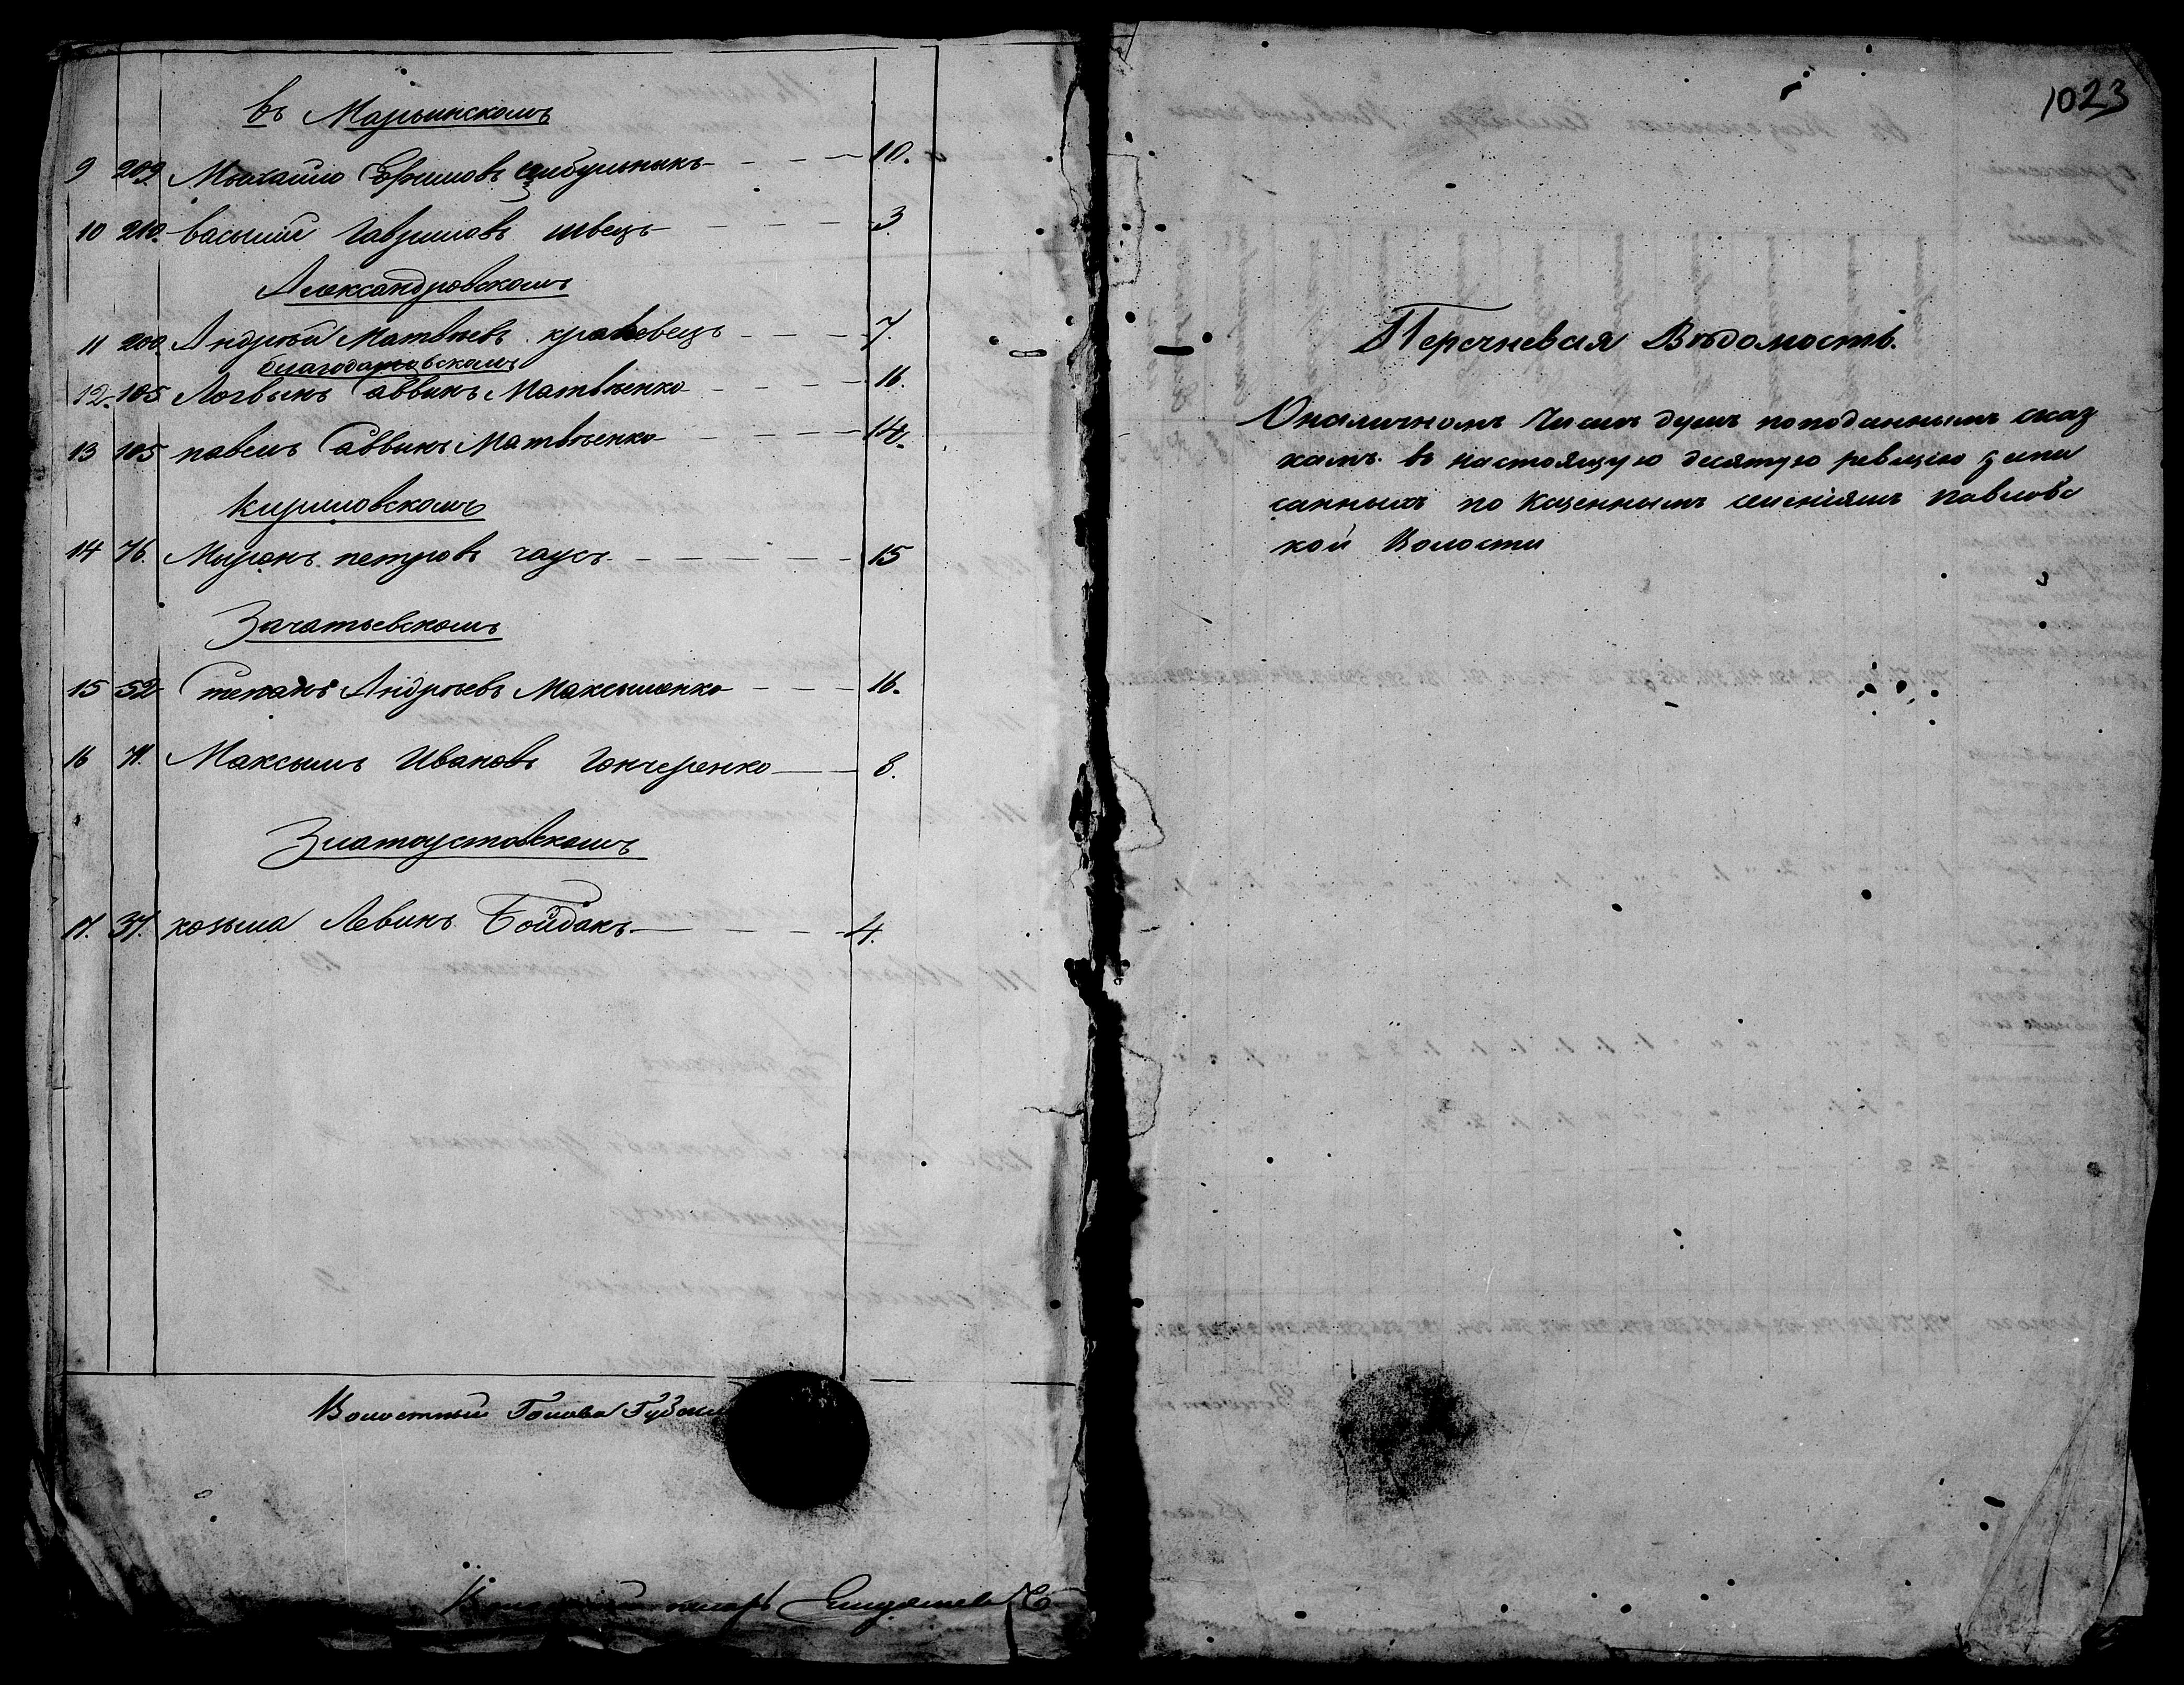 въ Марьинскомъ
9 209. Михайло Ефимовъ Цыбульныкъ 10.
10 210. василий Гавриловъ швецъ 3
Александровскомъ
11 200. Андрѣй Матвѣевъ кравевецъ 7.
благодатовскомъ
12. 105 Логвынъ Саввинъ Матвѣенко 16.
13 105 павелъ Саввинъ Матвѣенко 14.
Кириловскомъ
14 76. Миронъ петровъ чаусъ 15
Зачатьевскомъ
15 52 Степанъ Андрѣевъ Максыменко 16.
16 71. Максымъ Ивановъ Гончеренко 8.
Златоустовскомъ
17. 37. козьма Левинъ Бойдакъ 4.
Волостный Голова
Волостный писарь
1023
Перечневая Вѣдомость.
О наличномъ числѣ душъ по поданнымъ сказ
камъ въ настоящую десятую ревизию запи
санныхъ по Казеннымъ имениямъ павловс
кой Волости